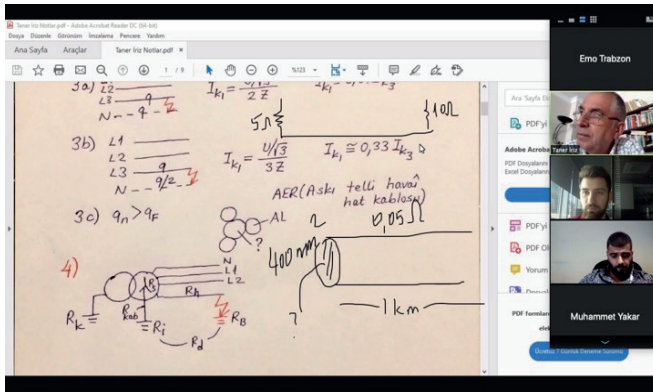 Taner İriz Notlar.pdf - Adobe Acrobat Reader DC (64-bit)
Dosya Düzenle Görünüm İmzalama Pencere Yardım
Ana Sayfa Araçlar Taner İriz Notlar.pdf ×
1 / 9 %123
3a) L2
L3 q
N - - q -
Ik₁ = U/√3 / 2Z
5Ω
10Ω
3b) L1
L2
L3 q
N - - q/2 - -
Ik₁ = U/√3 / 3Z
Ik₁ ≅ 0,33 Ik₃
AER (Askı telli havai hat kablosu)
3c) qn > qF
AL
?
2
400 mm
0,05 Ω
1 km
?
4)
N
L1
L2
Rh
Rkab
Rk
Ri
Rd
RB
Ara Sayfa
PDF'yi
Adobe Acroba
PDF Dosyaların
Excel Dosyaların
PDF'yi
PDF Ol
Yorum
PDF formları
elek
Ücretsiz 7 Günlük Deneme Sürümü
Emo Trabzon
Taner İriz
Muhammet Yakar